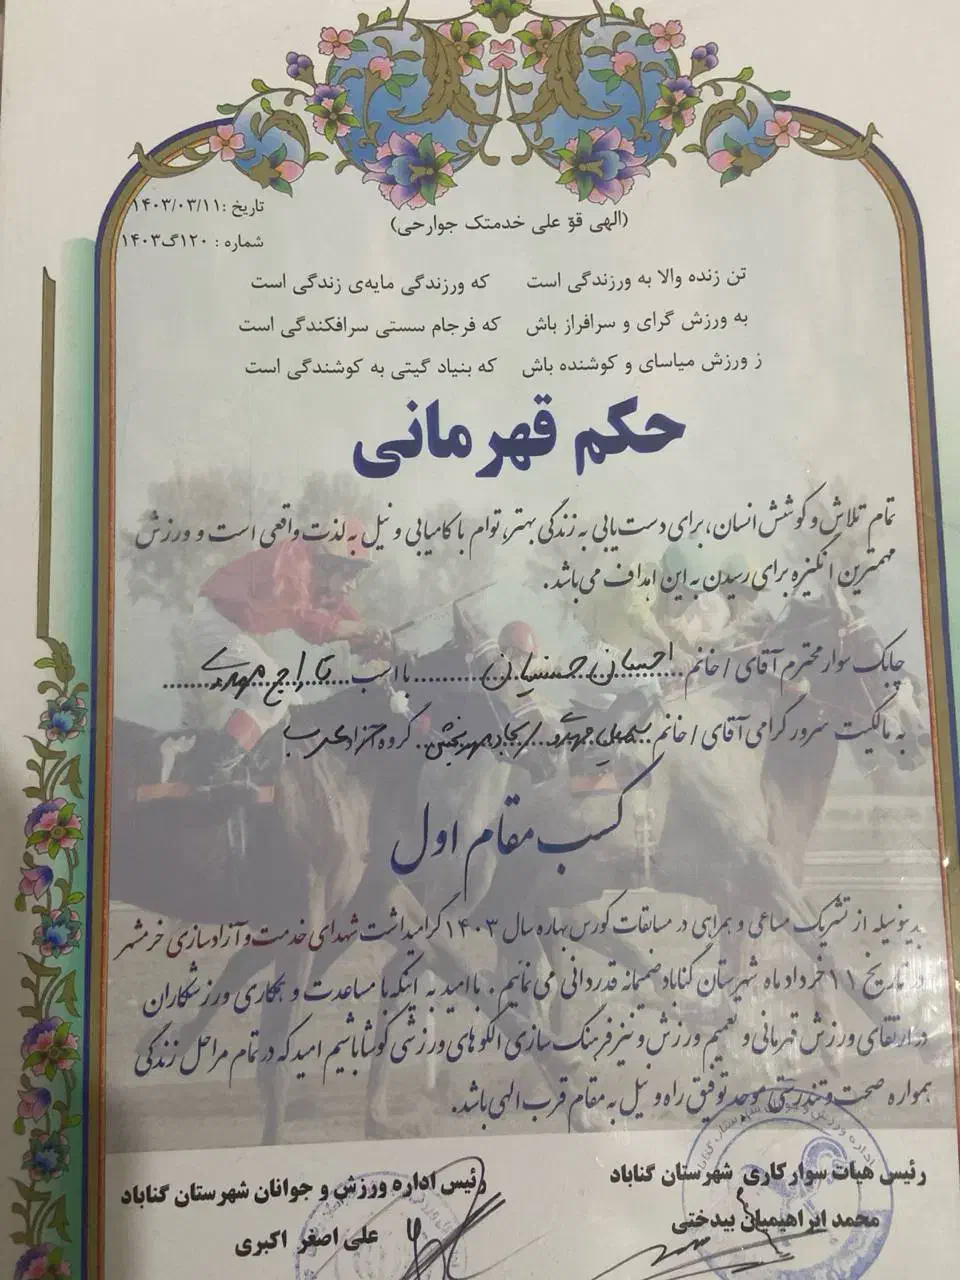 تاریخ :۱۴۰۳/۰۳/۱۱
شماره : ۱۲۰گ۱۴۰۳
(الهی قوّ علی خدمتک جوارحی)
تن زنده والا به ورزندگی است که ورزندگی مایه‌ی زندگی است
به ورزش گرای و سرافراز باش که فرجام سستی سرافکندگی است
ز ورزش میاسای و کوشنده باش که بنیاد گیتی به کوشندگی است
حکم قهرمانی
تمام تلاش و کوشش انسان، برای دست یابی به زندگی بهتر، توام با کامیابی و نیل به لذت واقعی است و ورزش
مهمترین انگیزه برای رسیدن به این اهداف می باشد.
چابک سوار محترم آقای / خانم احسان حسنیان با اسب
به مالکیت سرور گرامی آقای / خانم گروه آزاد عرب
کسب مقام اول
بدینوسیله از تشریک مساعی و همراهی در مسابقات کورس بهاره سال ۱۴۰۳ گرامیداشت شهدای خدمت و آزادسازی خرمشهر
در تاریخ ۱۱ خرداد ماه شهرستان گناباد صمیمانه قدردانی می نمائیم. با امید به اینکه با مساعدت و همکاری ورزشکاران
در ارتقای ورزش قهرمانی و تعمیم ورزش و نیز فرهنگ سازی الگوهای ورزشی کوشا باشیم امید که در تمام مراحل زندگی
همواره صحت و تندرستی موحد توفیق راه و نیل به مقام قرب الهی باشد.
رئیس هیات سوارکاری شهرستان گناباد
محمد ابراهیمیان بیدختی
رئیس اداره ورزش و جوانان شهرستان گناباد
علی اصغر اکبری